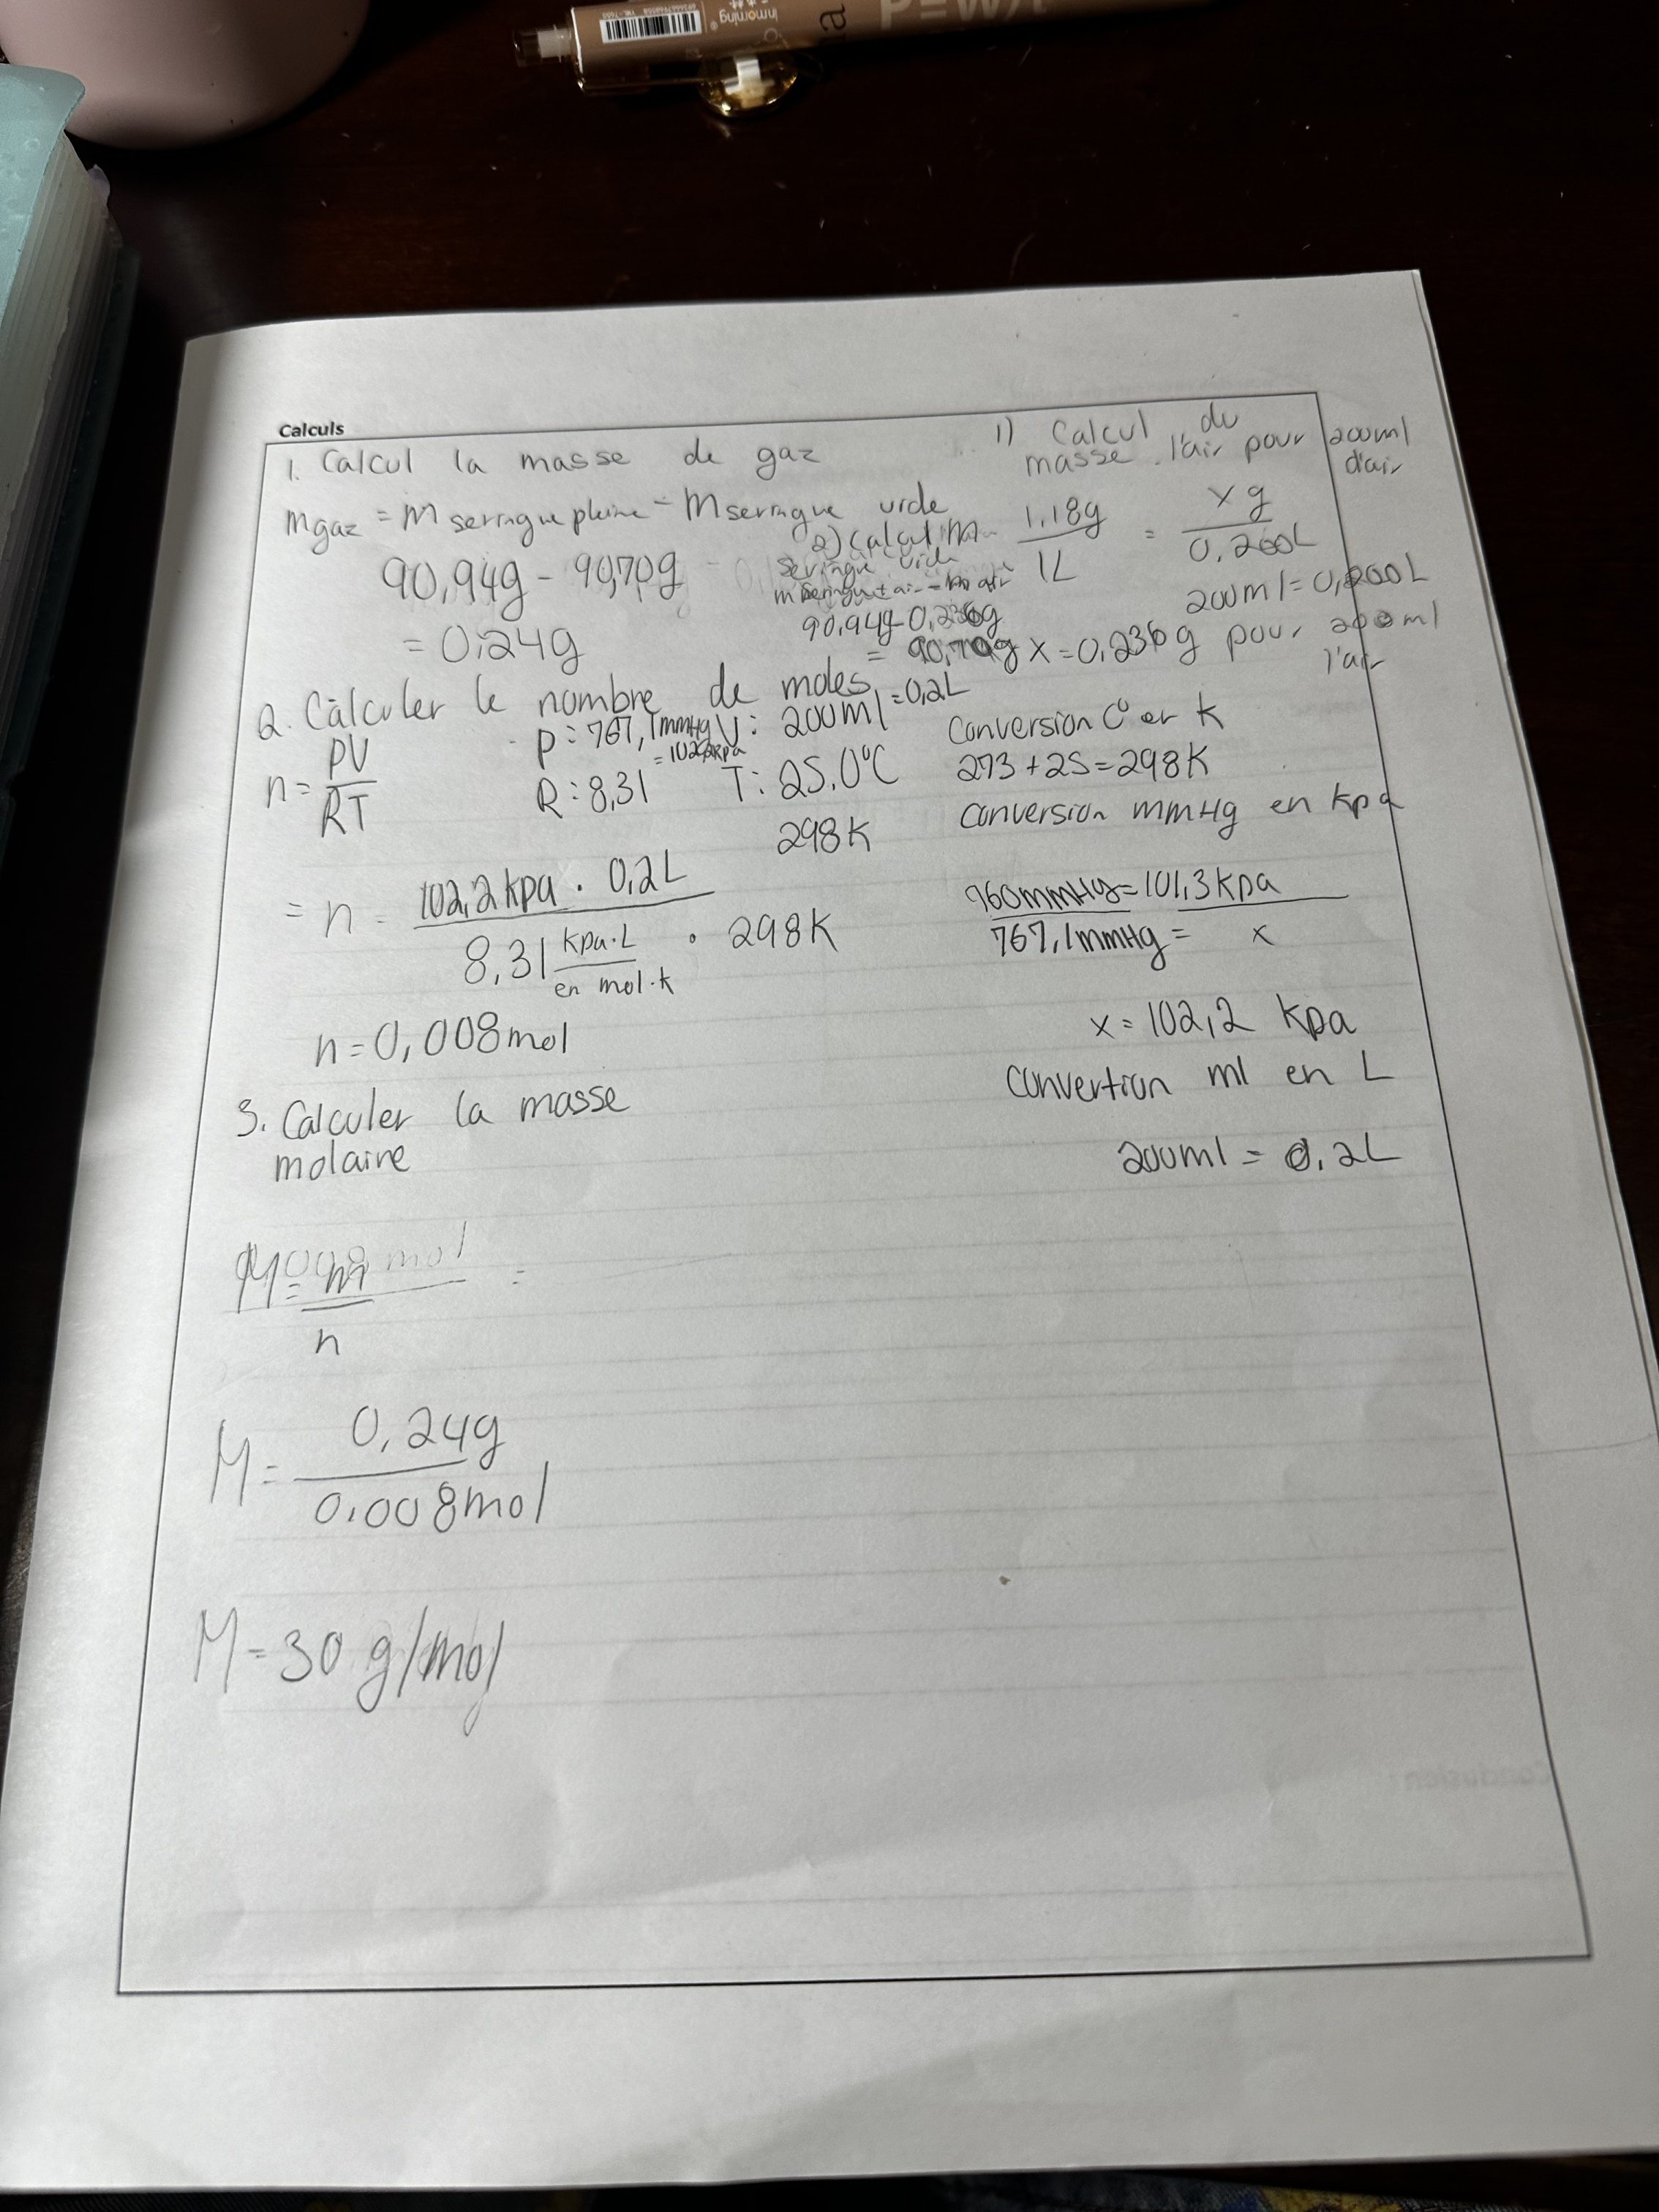 inmorning
Calculs
1. Calcul la masse de gaz
mgaz = m seringue pleine - m seringue vide
90,94g - 90,70g
= 0,24g
1) Calcul du
masse l'air pour 200ml
d'air
1,18g / 1L = x g / 0,200L
200ml = 0,200L
x = 0,236g pour 200ml
l'air
2) Calcul m
seringue vide
m seringue + air - m air
90,94g-0,236g
= 90,70g
2. Calculer le nombre de moles
n = PV / RT
P: 767,1mmHg
= 102,2kpa
V: 200ml = 0,2L
R: 8,31
T: 25.0°C
298K
Conversion C° en K
273 + 25 = 298K
conversion mmHg en kpa
760mmHg = 101,3 kpa
767,1mmHg = x
x = 102,2 kpa
convertion ml en L
200ml = 0.2L
= n = 102,2 kpa · 0,2L / 8,31 kpa·L en mol·k · 298K
n = 0,008mol
3. Calculer la masse
molaire
M = m / n
M = 0,24g / 0.008mol
M = 30 g/mol